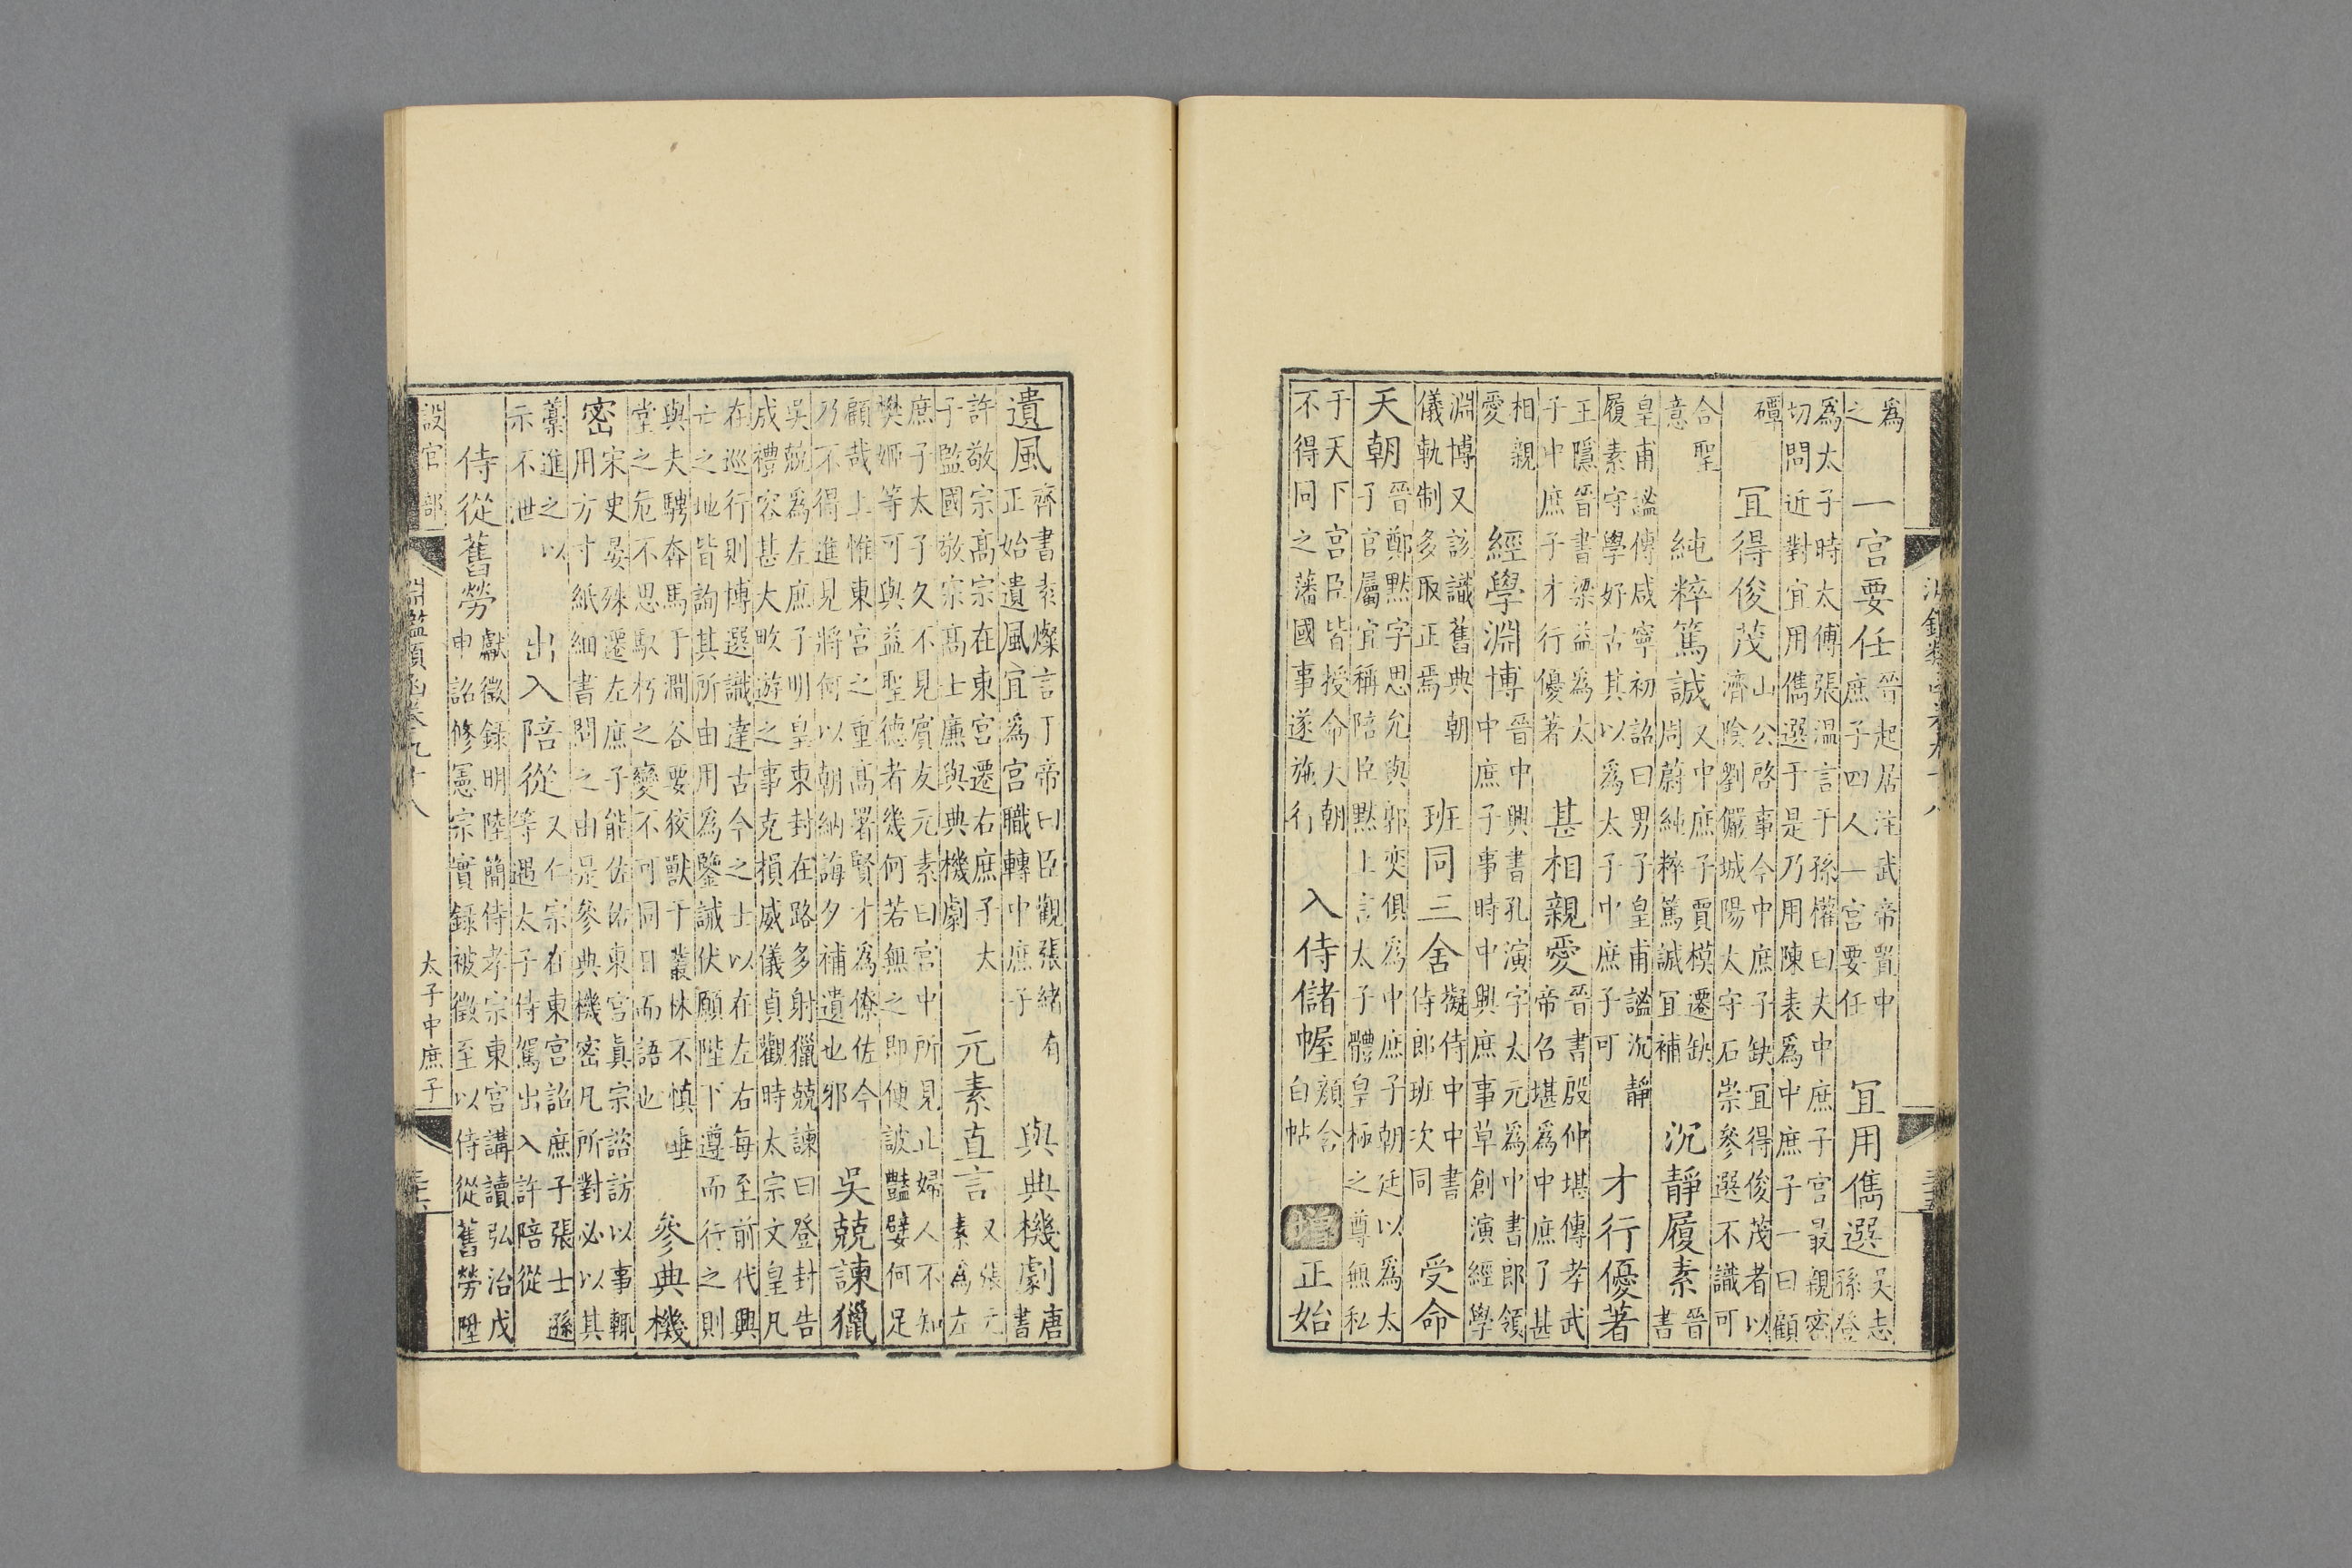 爲
之
一宮要任
晉起居注武帝置中
庶子四人一宮要任
宜用儁選
吳志
孫登
爲太子時太傅張溫言于孫權曰夫中庶子宮最親密
切問近對宜用儁選于是乃用陳表爲中庶子一曰顧
磹
宜得俊茂
山公啓事今中庶子缺宜得俊茂者以
濟陰劉儼城陽太守石崇參選不識可
合聖
意
純粹篤誠
又中庶子賈模遷缺
周蔚純粹篤誠宜補
沉靜履素
晉
書
皇甫謐傅咸寧初詔曰男子皇甫謐沉靜
履素守學好古其以爲太子中庶子可
才行優著
王隱晉書梁益爲太
子中庶子才行優著
甚相親愛
晉書殷仲堪傳孝武
帝召堪爲中庶子甚
相親
愛
經學淵博
晉中興書孔演字太元爲中書郎領
中庶子事時中興庶事草創演經學
淵博又該識舊典朝
儀軌制多取正焉
班同三舍
擬侍中中書
侍郎班次同
受命
天朝
晉鄭默字思允與郭奕俱爲中庶子朝廷以爲太
子官屬宜稱陪臣默上言太子體皇極之尊無私
于天下宮臣皆授命大朝
不得同之藩國事遂施行
入侍儲幄
顏含
白帖
增
正始
遺風
齊書袁燦言丁帝曰臣觀張緒有
正始遺風宜爲宮職轉中庶子
與典機劇
唐
書
許敬宗高宗在東宮遷右庶子太
子監國敬宗高士廉與典機劇
元素直言
又張元
素爲左
庶子太子久不見賓友元素曰宮中所見止婦人不知
樊姬等可與益聖德者幾何若無之即便詖豔嬖何足
顧哉上惟東宮之重高署賢才爲僚佐今
乃不得進見將何以朝納誨夕補遺也邪
吳兢諫獵
吳兢爲左庶子明皇東封在路多射獵兢諫曰登封告
成禮容甚大畋遊之事克損威儀貞觀時太宗文皇凡
在巡行則博選識達古今之士以在左右每至前代興
亡之地皆詢其所由用爲鑒誡伏願陛下遵而行之則
與夫騁奔馬于澗谷要狡獸于叢林不慎垂
堂之危不思馭朽之變不可同日而語也
參典機
密
宋史晏殊遷左庶子能佐佑東宮眞宗諮訪以事輒
用方寸紙細書問之由是參典機密凡所對必以其
藁進之以
示不泄
出入陪從
又仁宗在東宮詔庶子張士遜
等遇太子侍駕出入許陪從
侍從舊勞
獻徵錄明陸簡侍孝宗東宮講讀弘治戊
申詔修憲宗實錄被徵至以侍從舊勞陞
設官部
淵鑑類函卷九十八
太子中庶子